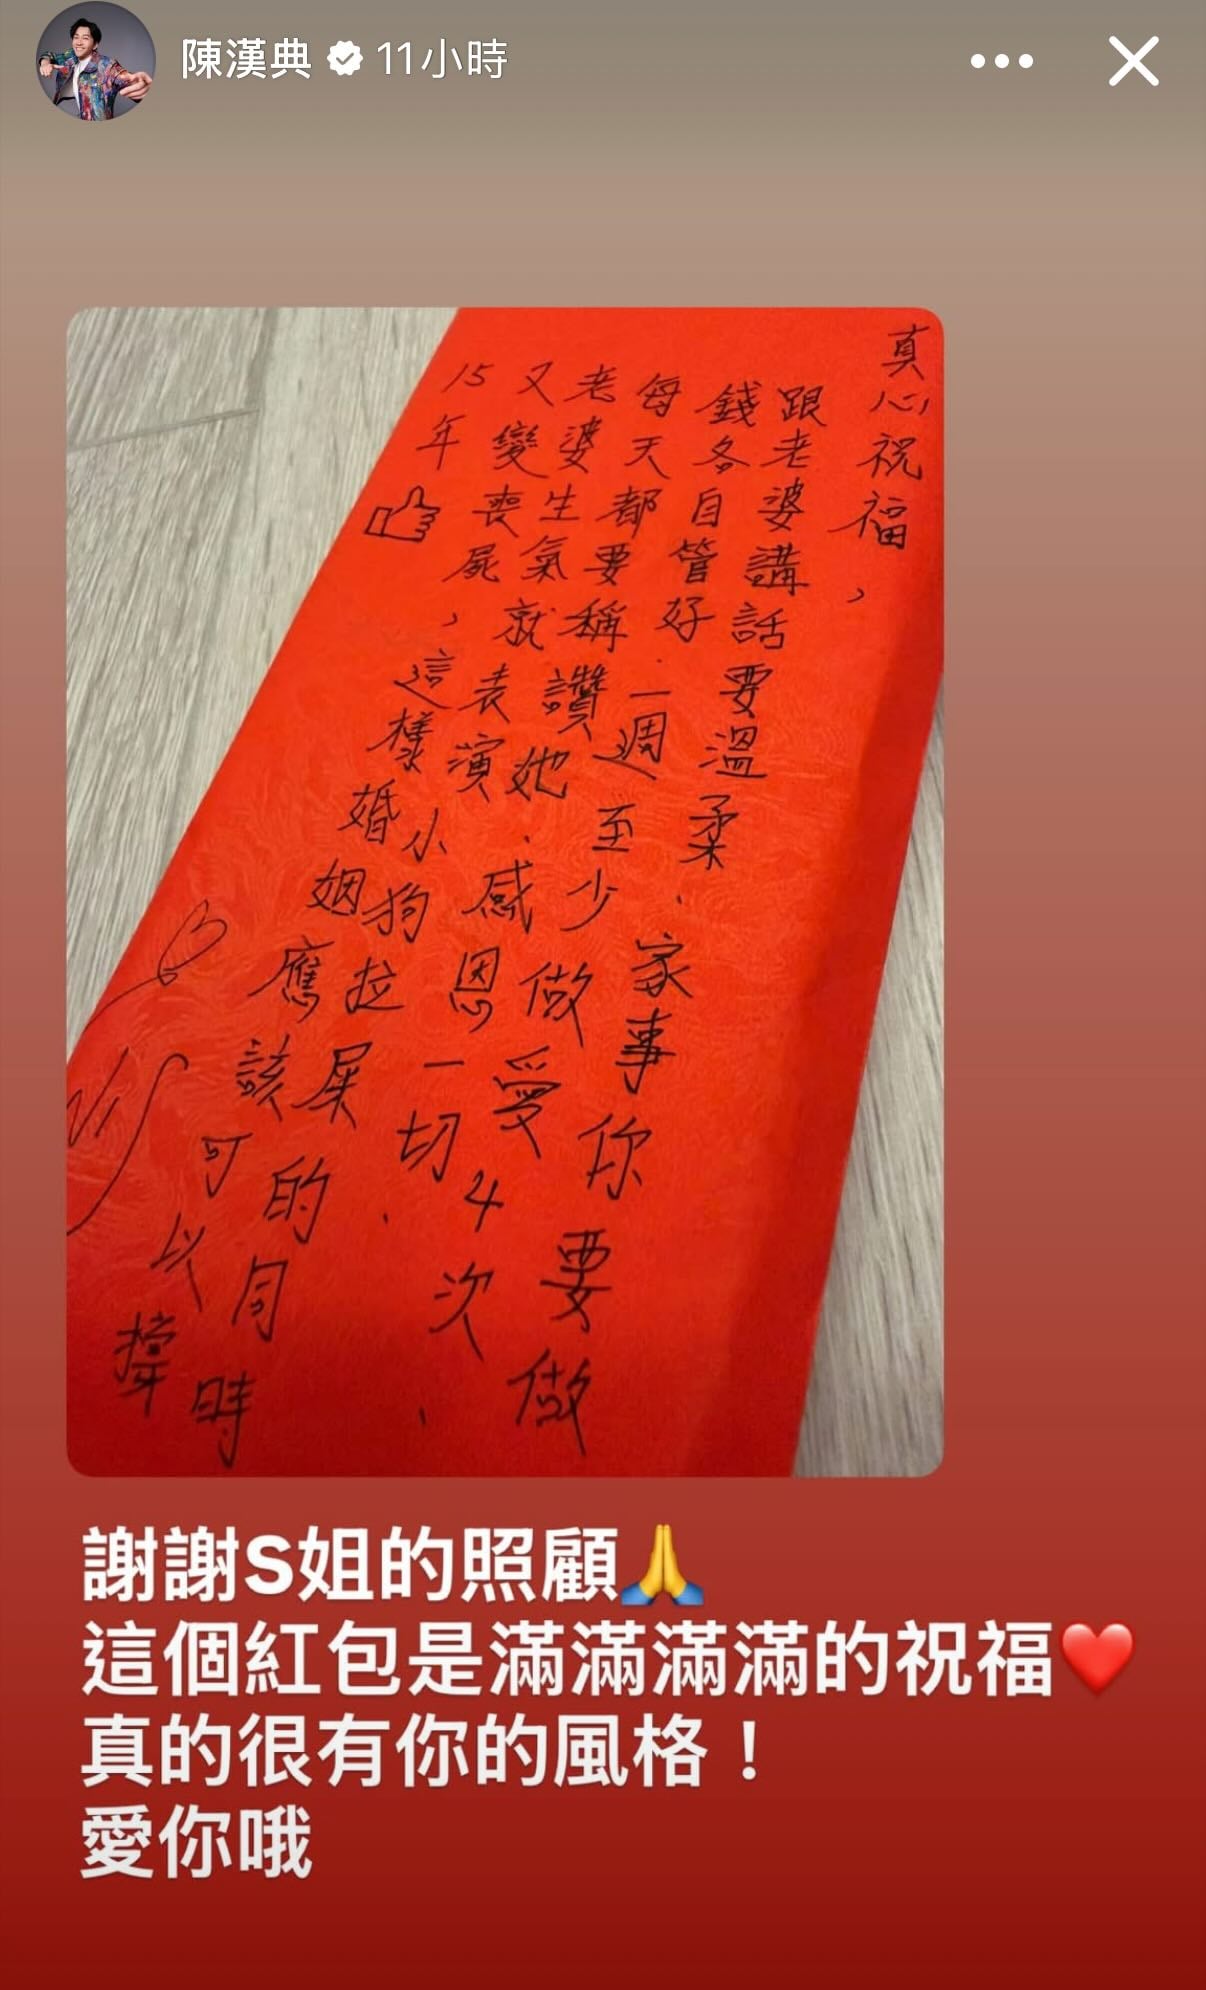 陳漢典 11小時
真心祝福，
跟老婆講話要溫柔、家事你要做
錢各自管好、一週至少做愛4次、
每天都要稱讚她、感恩一切、
老婆生氣就表演小狗拉屎的同時
又變喪屍，這樣婚姻應該可以撐
15年
謝謝S姐的照顧🙏
這個紅包是滿滿滿滿的祝福❤️
真的很有你的風格！
愛你哦